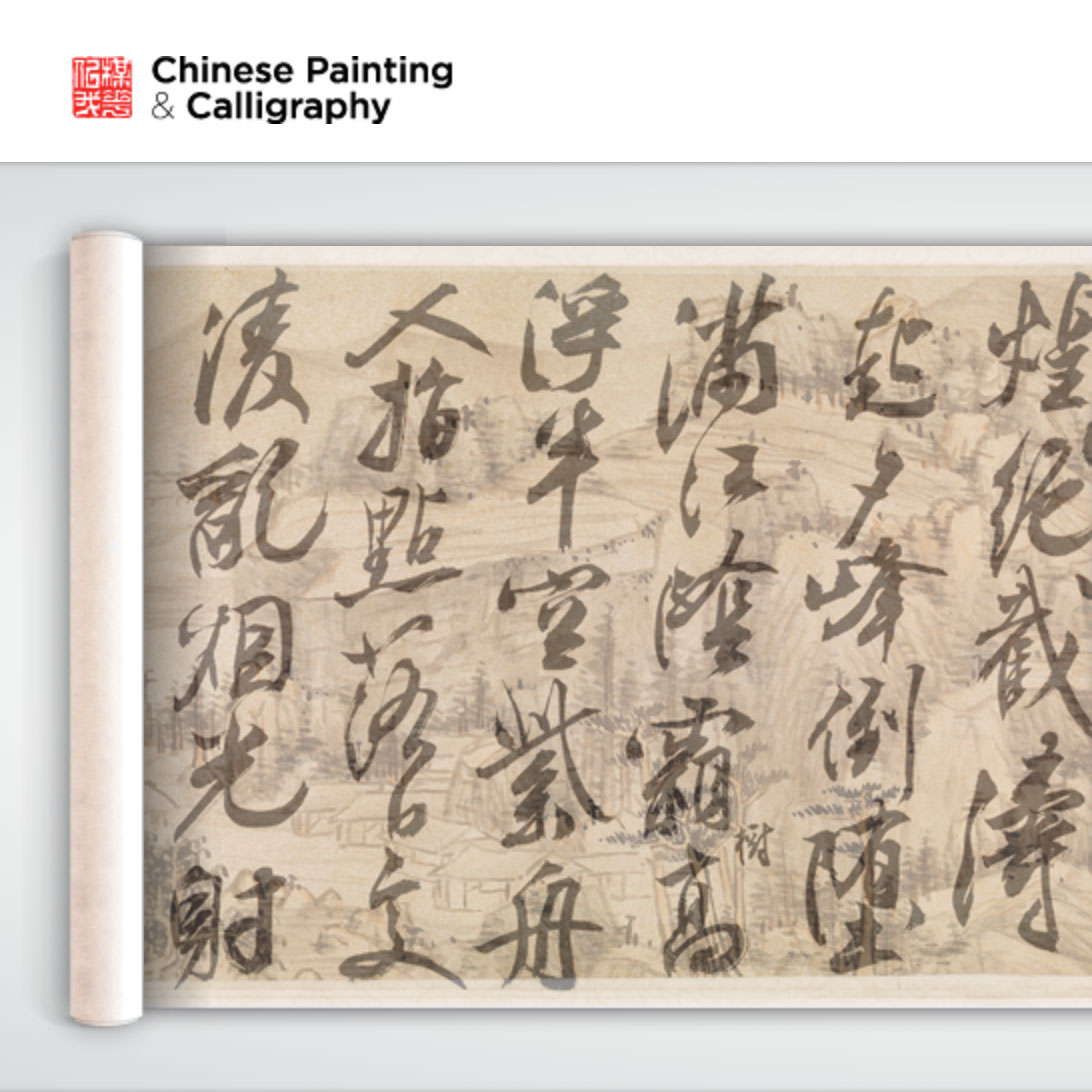 Chinese Painting
& Calligraphy
煌絕截濤
起夕峰倒墮
滿江陰高樹
浮半空紫舟
人指點落日文
淩亂烟光射